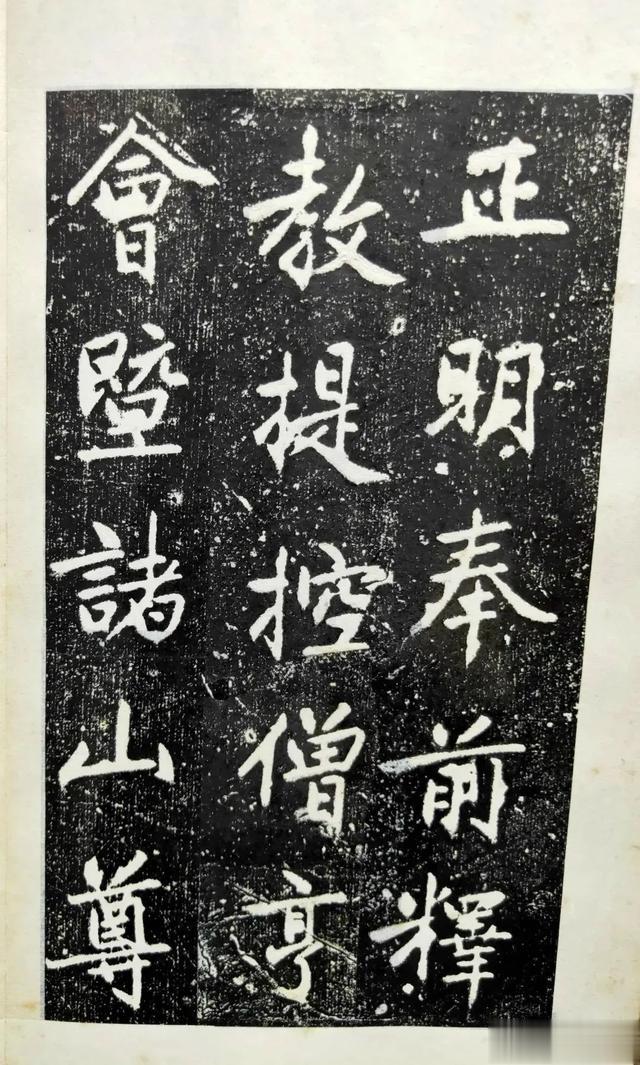 正明奉前釋
教提控僧亨
會暨諸山尊